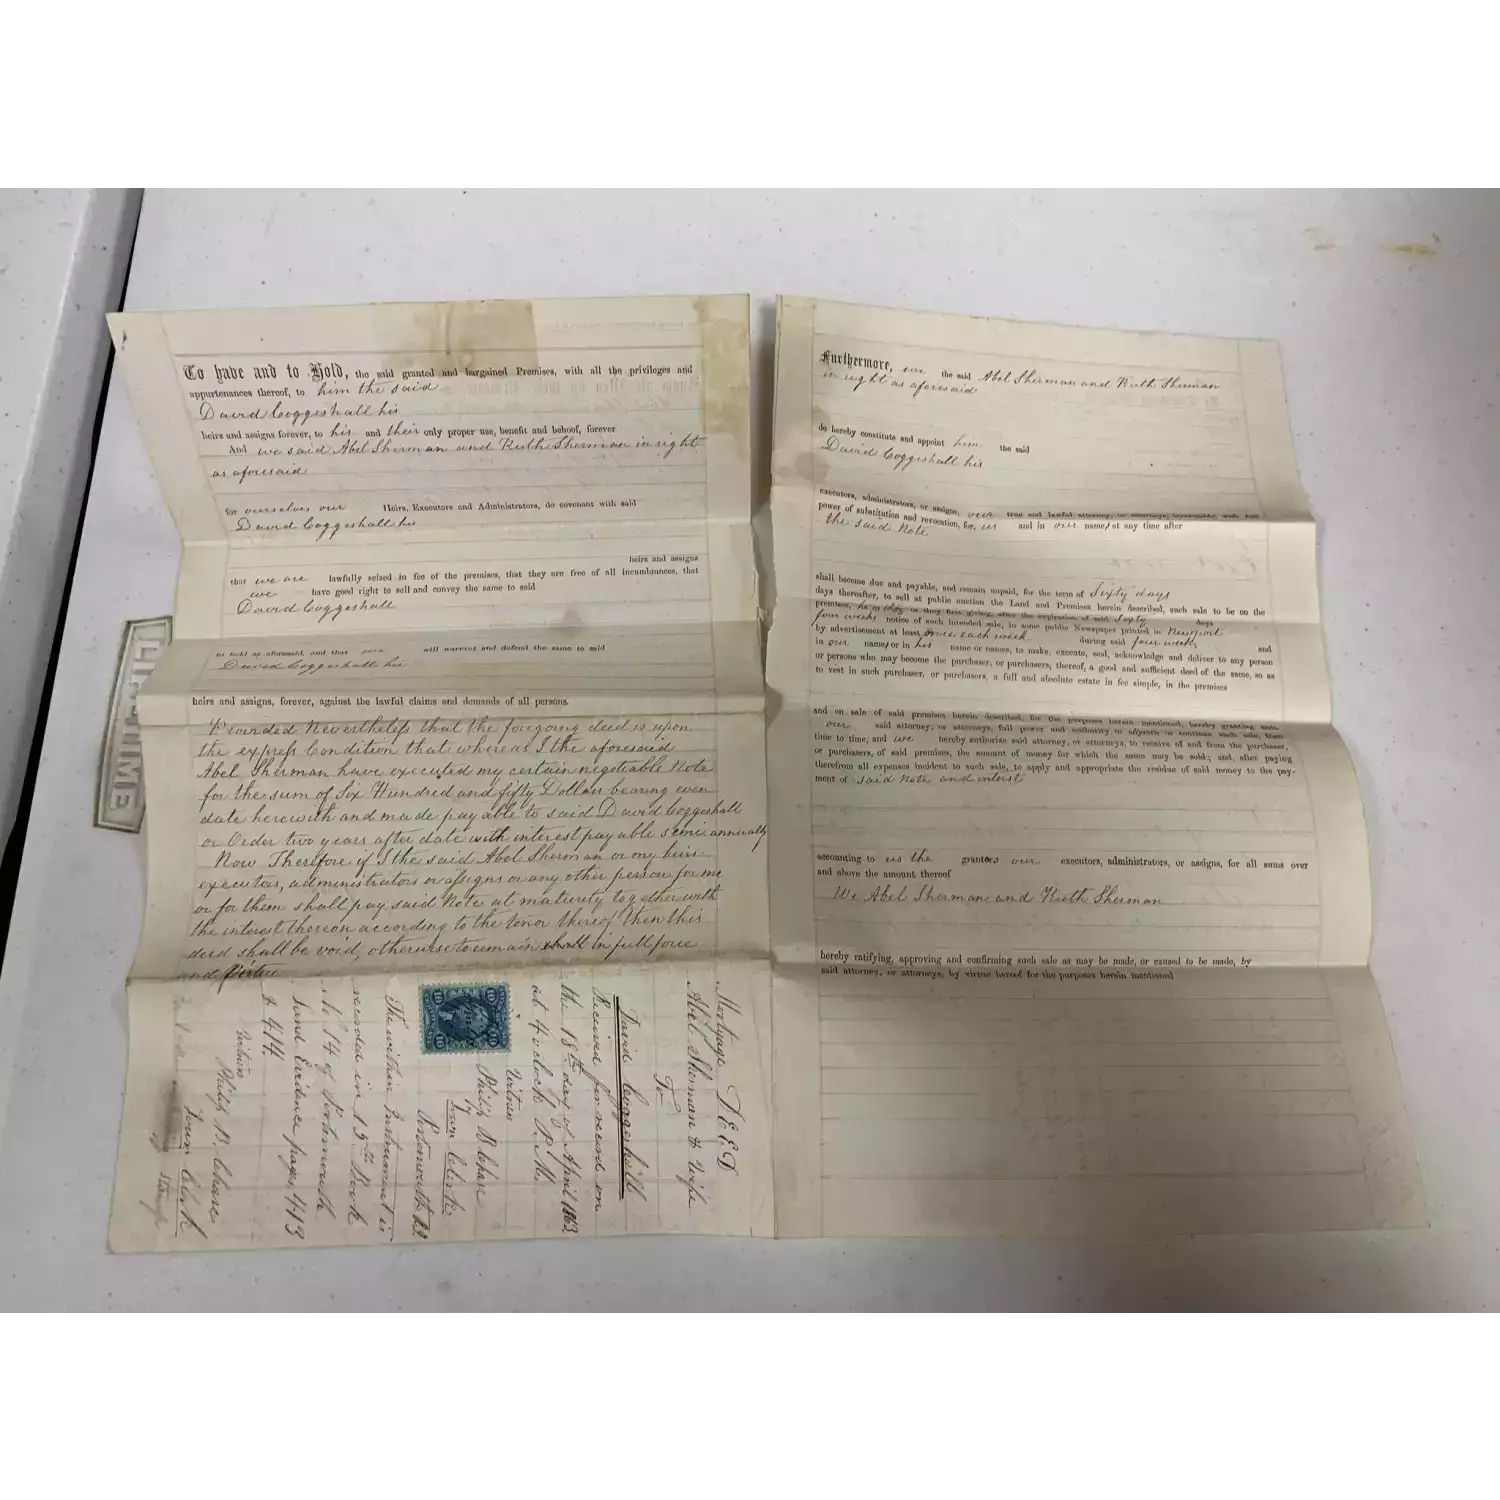 To have and to Hold, the said granted and bargained Premises, with all the privileges and
appurtenances thereof, to him the said
David Coggeshall his
heirs and assigns forever, to his and their only proper use, benefit and behoof, forever
And we said Abel Sherman and Ruth Sherman in right
as aforesaid
for ourselves our Heirs, Executors and Administrators, do covenant with said
David Coggeshall his
heirs and assigns
that we are lawfully seized in fee of the premises, that they are free of all incumbrances, that
we have good right to sell and convey the same to said
David Coggeshall
to hold as aforesaid, and that will warrant and defend the same to said
David Coggeshall his
heirs and assigns, forever, against the lawful claims and demands of all persons.
Provided Nevertheless that the foregoing deed is upon
the express Condition that whereas I the aforesaid
Abel Sherman have executed my certain negotiable Note
for the sum of Six Hundred and fifty Dollars bearing even
date herewith and made payable to said David Coggeshall
or Order two years after date with interest payable semi annually
Now Therefore if I the said Abel Sherman or my heirs
executors, administrators or assigns or any other person for me
or for them shall pay said Note at maturity together with
the interest thereon according to the tenor thereof Then this
deed shall be void, otherwise to remain shall in full force
and virtue
Mortgage DEED
Abel Sherman & Wife
To
David Coggeshall
Received for record on
the 18th day of April 1863
at 4 oclock P.M.
Witness
Philip B. Chase
Town Clerk
Portsmouth RI
The within Instrument is
recorded in 15th Book
No 14 of Portsmouth
Land Evidence pages 413
& 414.
Witness
Philip B. Chase
Town Clerk
Furthermore, we the said Abel Sherman and Ruth Sherman
in right as aforesaid
do hereby constitute and appoint him the said
David Coggeshall his
executors, administrators, or assigns, our true and lawful attorney, or attorneys, irrevocable, with full
power of substitution and revocation, for, us and in our names at any time after
the said Note
shall become due and payable, and remain unpaid, for the term of Sixty days
days thereafter, to sell at public auction the Land and Premises herein described, such sale to be on the
premises, he or they first giving, after the expiration of said Sixty days
four weeks notice of such intended sale, in some public Newspaper printed in Newport
by advertisement at least once each week during said four weeks and
in our names or in his name or names, to make, execute, seal, acknowledge and deliver to any person
or persons who may become the purchaser, or purchasers, thereof, a good and sufficient deed of the same, so as
to vest in such purchaser, or purchasers, a full and absolute estate in fee simple, in the premises
and on sale of said premises herein described, for the purposes herein mentioned, hereby granting unto
our said attorney, or attorneys, full power and authority to adjourn or continue such sale, from
time to time, and we hereby authorize said attorney, or attorneys, to receive of and from the purchaser,
or purchasers, of said premises, the amount of money for which the same may be sold; and, after paying
therefrom all expenses incident to such sale, to apply and appropriate the residue of said money to the pay-
ment of said Note and interest
accounting to us the grantors our executors, administrators, or assigns, for all sums over
and above the amount thereof
We Abel Sherman and Ruth Sherman
hereby ratifying, approving and confirming such sale as may be made, or caused to be made, by
said attorney, or attorneys, by virtue hereof for the purposes herein mentioned